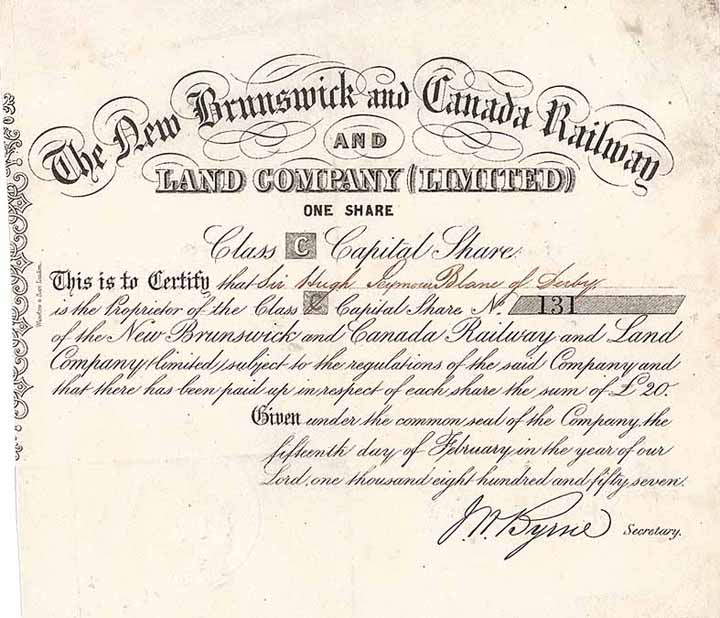 The New Brunswick and Canada Railway
AND
LAND COMPANY (LIMITED)
ONE SHARE
Class C Capital Share.
This is to Certify, that Sir Hugh Seymour Blane of Derby
is the Proprietor of the Class C Capital Share No. 131
of the New Brunswick and Canada Railway and Land
Company (limited) subject to the regulations of the said Company and
that there has been paid up in respect of each share the sum of £20.
Given under the common seal of the Company, the
fifteenth day of February in the year of our
Lord, one thousand eight hundred and fifty seven.
Byrne Secretary.
& Son London.